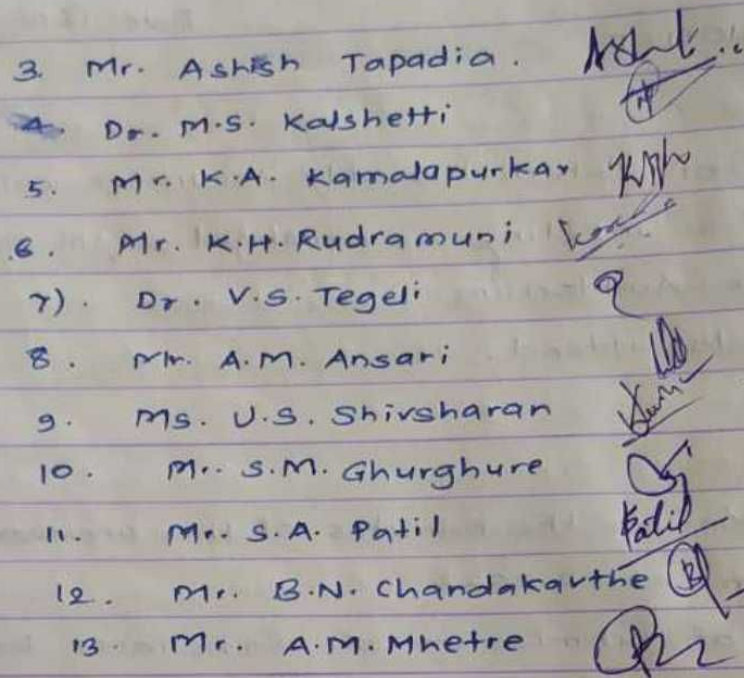 3. Mr. Ashish Tapadia.
4. Dr. M.S. Kalshetti
5. Mr. K.A. Kamalapurkar
6. Mr. K.H. Rudramuni
7). Dr. V.S. Tegeli
8. Mr. A.M. Ansari
9. Ms. U.S. Shivsharan
10. Mr. S.M. Ghurghure
11. Mr. S.A. Patil Patil
12. Mr. B.N. Chandakavthe
13. Mr. A.M. Mhetre